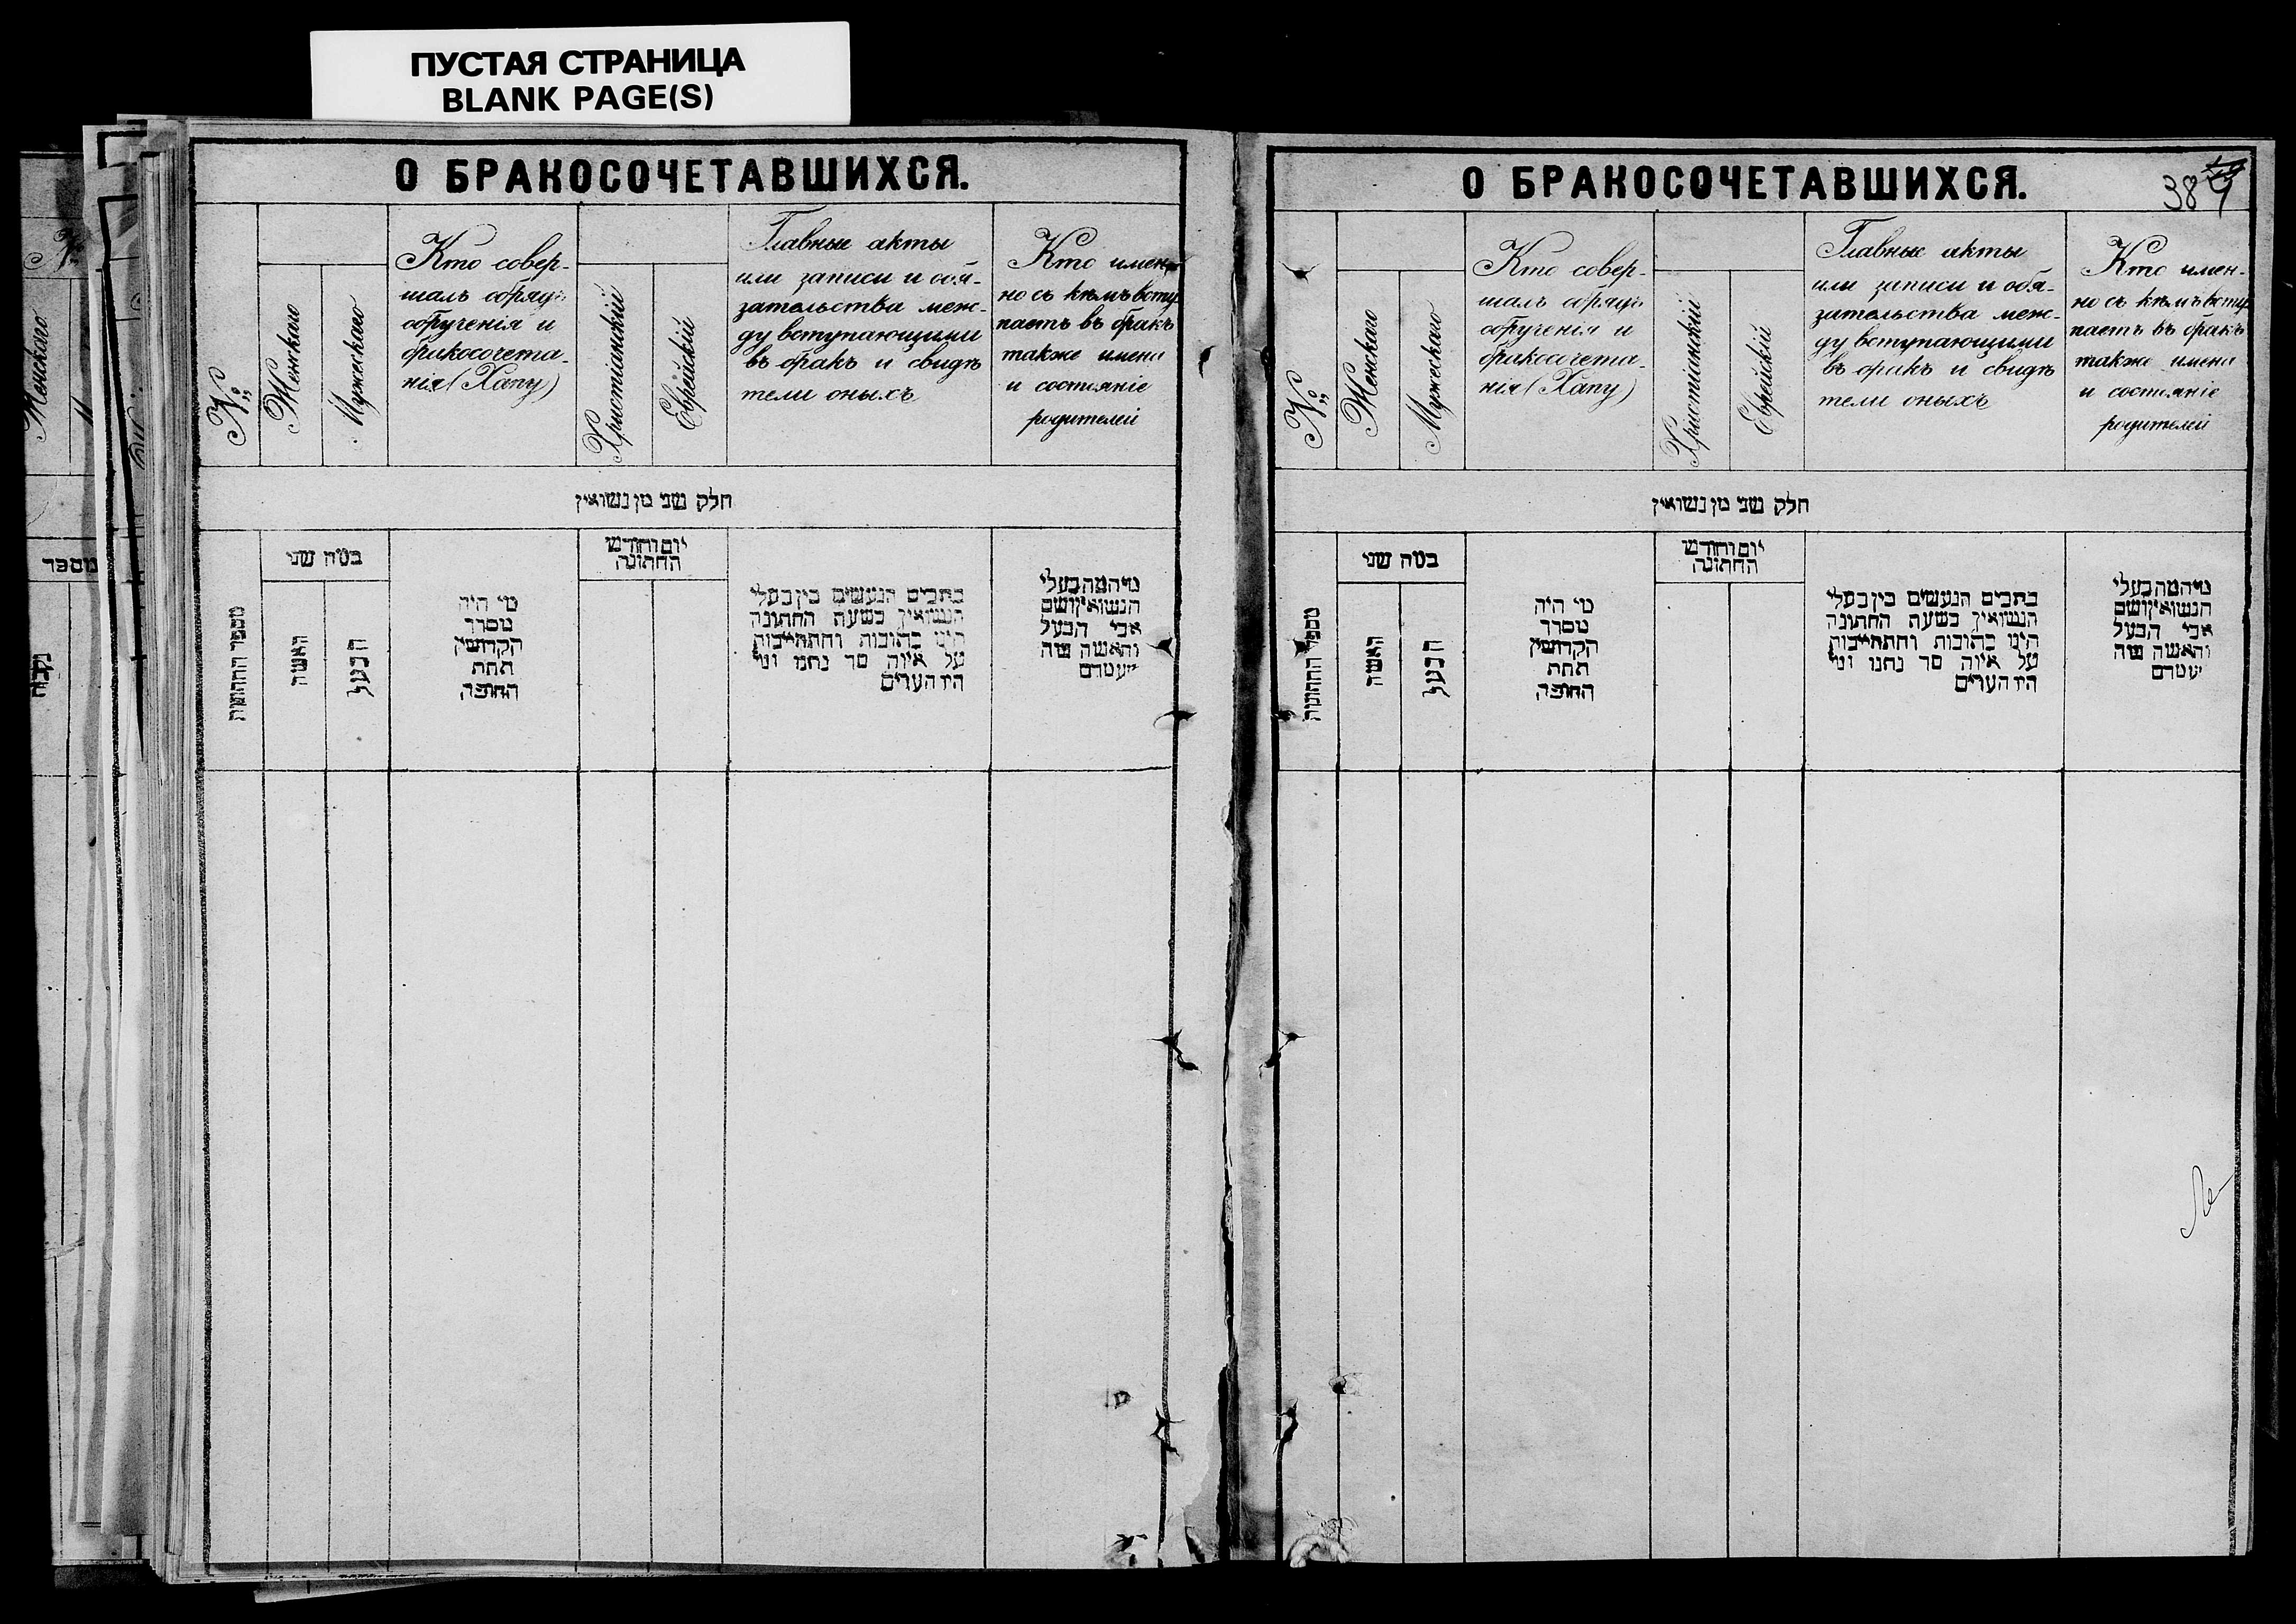 ПУСТАЯ СТРАНИЦА
BLANK PAGE(S)
О БРАКОСОЧЕТАВШИХСЯ.
№
Женскаго
Мужескаго
Кто совер-
шалъ обрядъ
обрученія и
бракосочета-
нія (Хапу)
Христіанскій
Еврейскій
Главные акты
или записи и обя-
зательства меж-
ду вступающими
въ бракъ и свидѣ
тели оныхъ
Кто имен-
но съ кѣмъ всту
паетъ въ бракъ
также имена
и состояніе
родителей
חלק שני מן נשואין
מספר החתונות
במה שני
האשה
הבעל
מי היה
מסדר
הקדושין
תחת
החופה
יום וחודש
החתונה
כתבים הנעשים בין בעלי
הנשואין בשעת החתונה
היינו כתובות והתחייבות
על איזה סך נתנו ומי
היו העדים
מי המה בעלי
הנשואין ושם
אבי הבעל
והאשה ומה
מעמדם
О БРАКОСОЧЕТАВШИХСЯ.
38
№
Женскаго
Мужескаго
Кто совер-
шалъ обрядъ
обрученія и
бракосочета-
нія (Хапу)
Христіанскій
Еврейскій
Главные акты
или записи и обя-
зательства меж-
ду вступающими
въ бракъ и свидѣ
тели оныхъ
Кто имен-
но съ кѣмъ всту
паетъ въ бракъ
также имена
и состояніе
родителей
חלק שני מן נשואין
מספר החתונות
במה שני
האשה
הבעל
מי היה
מסדר
הקדושין
תחת
החופה
יום וחודש
החתונה
כתבים הנעשים בין בעלי
הנשואין בשעת החתונה
היינו כתובות והתחייבות
על איזה סך נתנו ומי
היו העדים
מי המה בעלי
הנשואין ושם
אבי הבעל
והאשה ומה
מעמדם